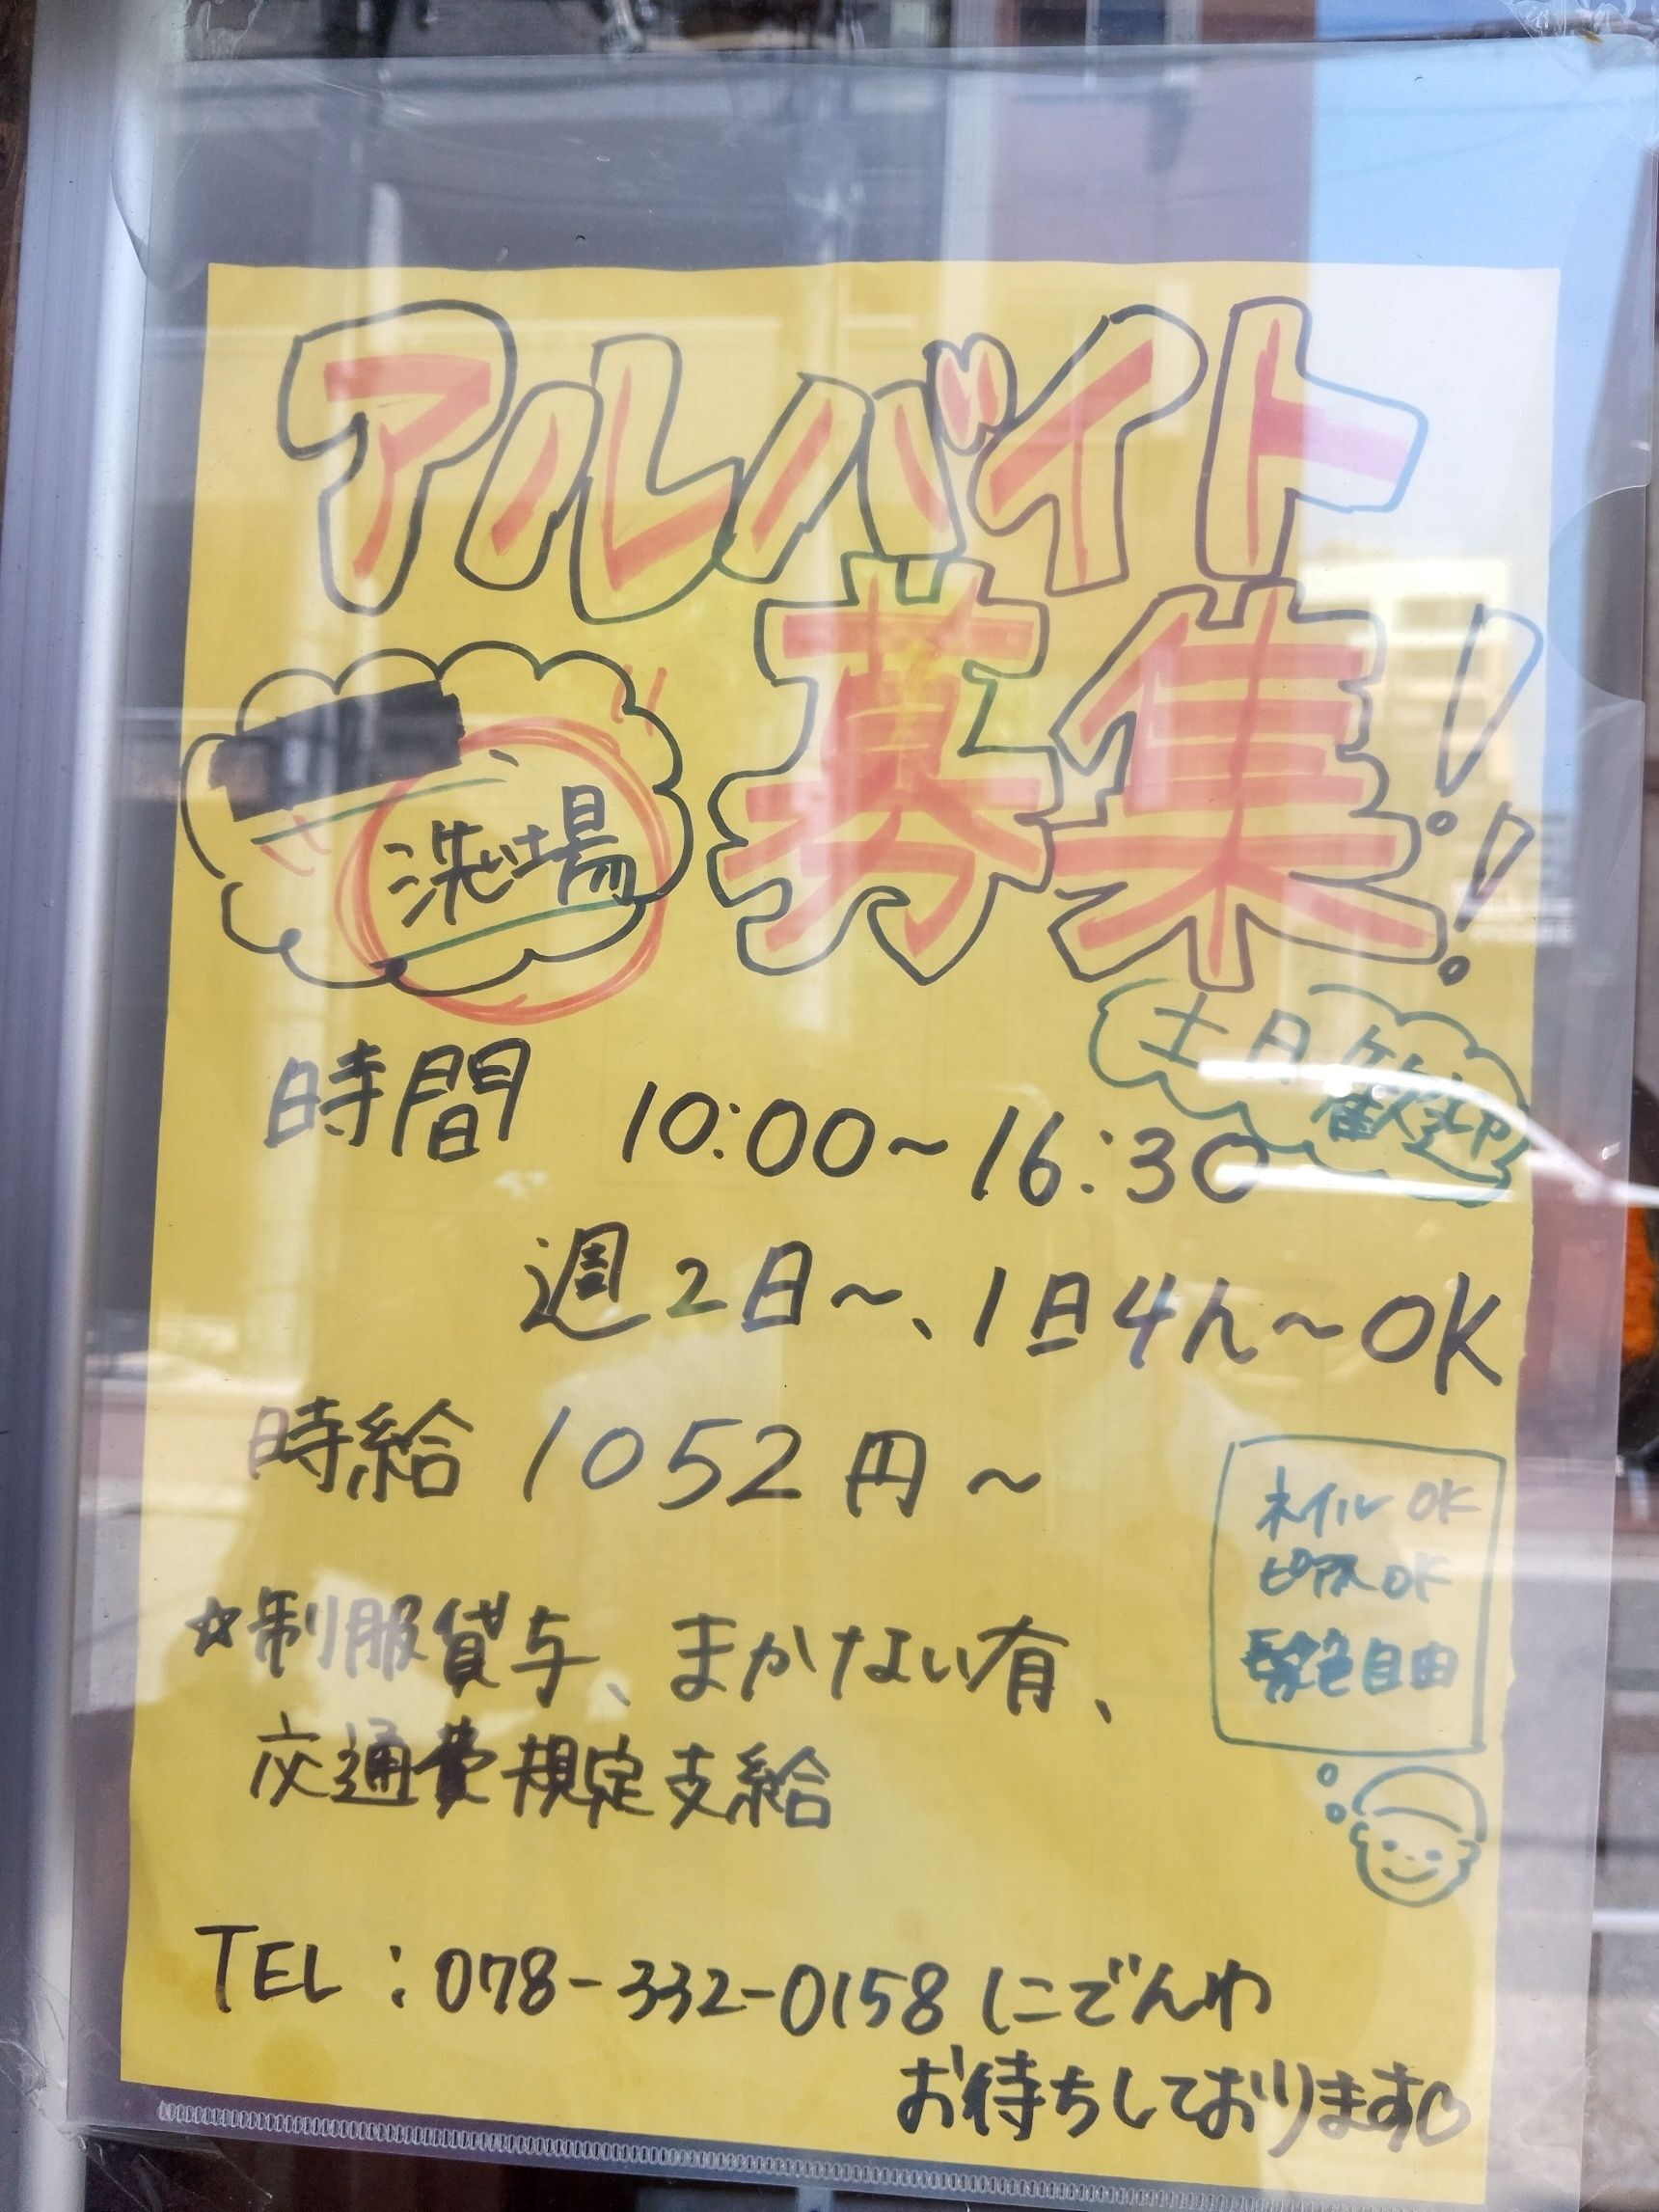 アルバイト
募集!!
洗い場
土日歓迎
時間 10:00~16:30
週2日~、1日4h~OK
時給 1052円~
ネイルOK
ピアスOK
髪色自由
☆制服貸与、まかない有、
交通費規定支給
TEL:078-332-0158にでんわ
お待ちしております♡